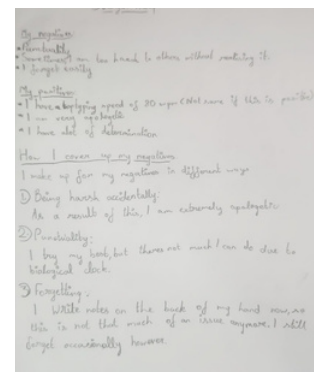 My negatives
• Punctuality
• Sometimes I am too harsh to others without realising it.
• I forget easily
My positives
• I have a typing speed of 90 wpm (Not sure if this is positive)
• I am very apologetic
• I have alot of determination
How I cover up my negatives
I make up for my negatives in different ways
1) Being harsh accidentally:
As a result of this, I am extremely apologetic
2) Punctuality:
I try my best, but theres not much I can do due to
biological clock.
3) Forgetting:
I write notes on the back of my hand now, so
this is not that much of an issue anymore. I still
forget occasionally however.